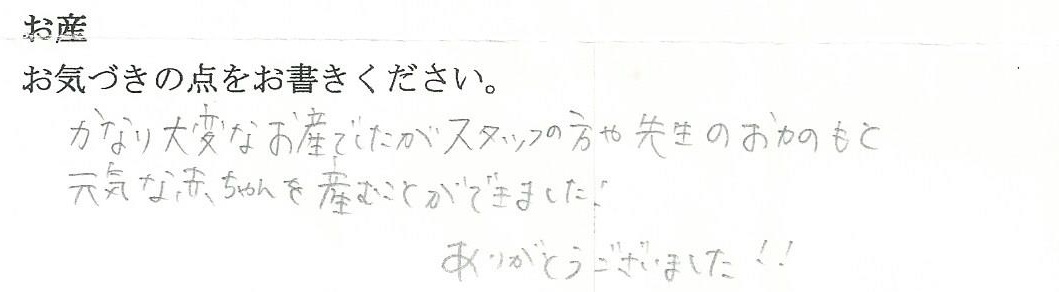 お産
お気づきの点をお書きください。
かなり大変なお産でしたがスタッフの方や先生のおかのもと
元気な赤ちゃんを産むことができました!
ありがとうございました!!